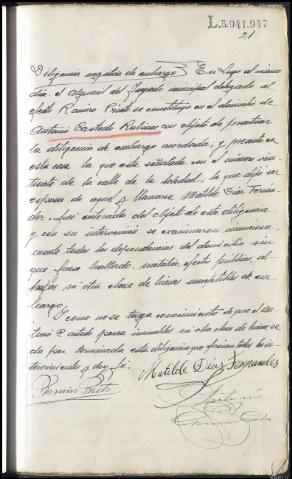 L.5.941.947
21
Diligencia negativa de embargo} En Lugo al mismo
dia: el Alguacil del Juzgado municipal delegado al
efecto Ramiro Prieto se constituyo en el domicilio de
Antonio Castedo Rubinos con objeto de practicar
la diligencia de embargo acordada, y presente en
esta casa la que está señalada con el número vein-
tiuno de la calle de la Soledad, la que dijo ser
esposa de aquel y llamarse Matilde Diaz Fernán-
dez, fué enterada del objeto de esta diligencia
y con su intervención se examinaron minuciosa-
mente todas las dependencias del domicilio sin
que fuera hallado, metálico, efectos públicos, al-
hajas ni otra clase de bienes susceptibles de em-
bargo.
Y como no se tenga conocimiento de que el An-
tonio Castedo posea inmuebles ni otra clase de bienes se
da por terminada esta diligencia que firman todos los in-
tervinientes y doy fé:
Ramiro Prieto
Matilde Diaz Fernandez